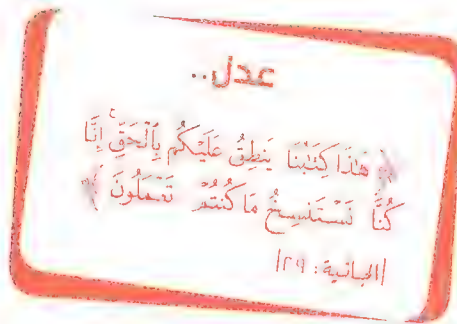 عدل..
﴿ هَٰذَا كِتَٰبُنَا يَنطِقُ عَلَيْكُم بِٱلْحَقِّ ۚ إِنَّا
كُنَّا نَسْتَنسِخُ مَا كُنتُمْ تَعْمَلُونَ ﴾
|الجاثية: ٢٩|